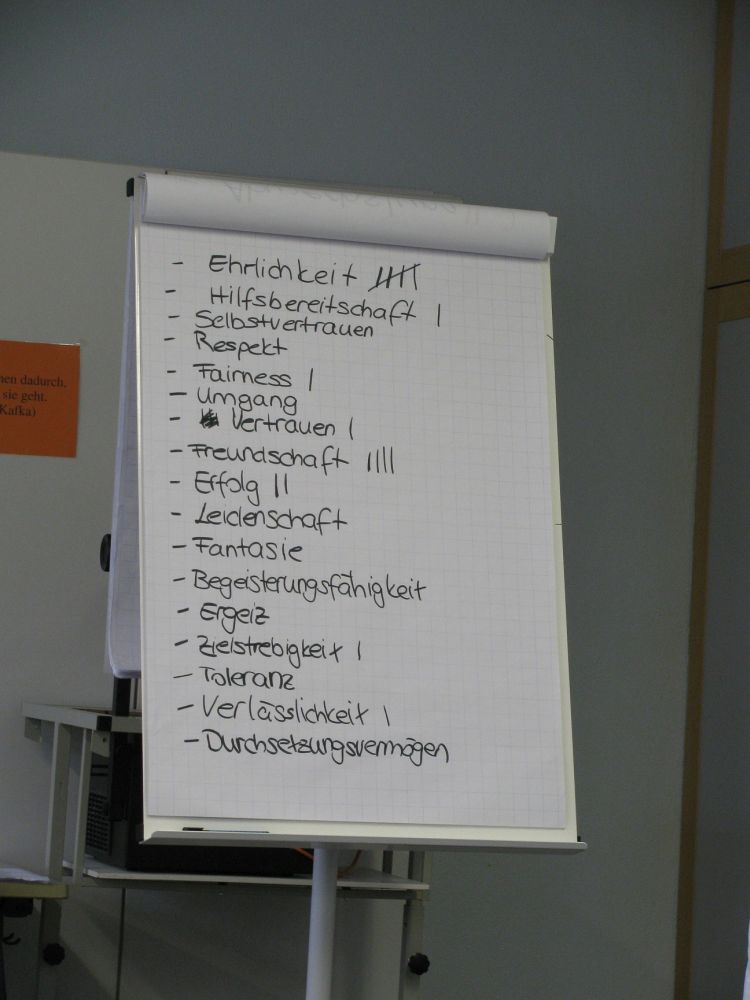 - Ehrlichkeit ||||
- Hilfsbereitschaft |
- Selbstvertrauen
- Respekt
- Fairness |
- Umgang
- Vertrauen |
- Freundschaft ||||
- Erfolg ||
- Leidenschaft
- Fantasie
- Begeisterungsfähigkeit
- Ergeiz
- Zielstrebigkeit |
- Toleranz
- Verlässlichkeit |
- Durchsetzungsvermögen
nen dadurch,
sie geht.
Kafka)